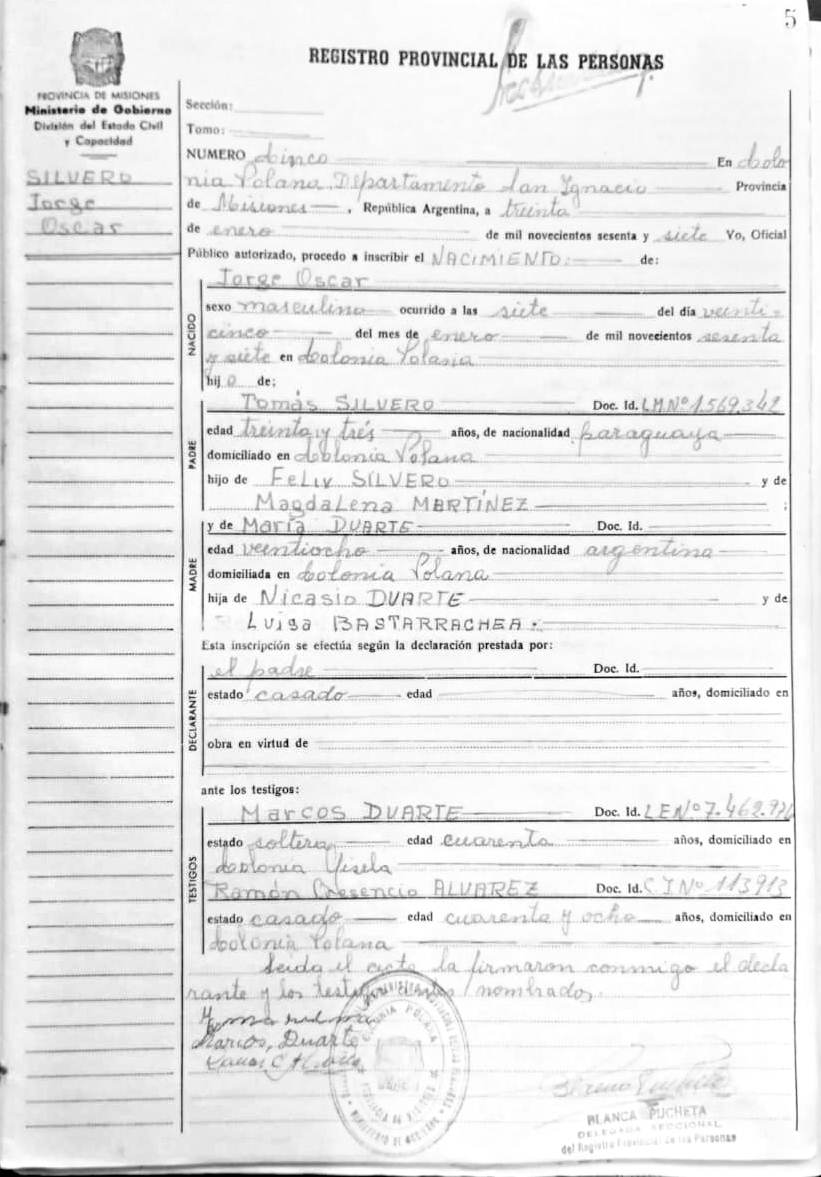 5
REGISTRO PROVINCIAL DE LAS PERSONAS
PROVINCIA DE MISIONES
Ministerio de Gobierno
División del Estado Civil
y Capacidad
SILVERO
Jorge
Oscar
Sección:
Tomo:
NUMERO cinco En Colo
nia Polana, Departamento San Ignacio Provincia
de Misiones, República Argentina, a treinta
de enero de mil novecientos sesenta y siete Yo, Oficial
Público autorizado, procedo a inscribir el NACIMIENTO: de:
NACIDO
Jorge Oscar
sexo masculino ocurrido a las siete del día veinti-
cinco del mes de enero de mil novecientos sesenta
y siete en Colonia Polana
hijo de:
PADRE
Tomás SILVERO Doc. Id. LM Nº 1.569.342
edad treinta y trés años, de nacionalidad paraguaya
domiciliado en Colonia Polana
hijo de Feliv SILVERO y de
Magdalena MARTÍNEZ ;
MADRE
y de María DUARTE Doc. Id.
edad veintiocho años, de nacionalidad argentina
domiciliada en Colonia Polana
hija de Nicasio DUARTE y de
Luisa BASTARRACHEA.
Esta inscripción se efectúa según la declaración prestada por:
DECLARANTE
el padre Doc. Id.
estado casado edad años, domiciliado en
obra en virtud de
ante los testigos:
TESTIGOS
Marcos DUARTE Doc. Id. LE Nº 7.462.
estado soltero edad cuarenta años, domiciliado en
Colonia Gisela
Ramón Cresencio ALVAREZ Doc. Id. C I Nº 113913
estado casado edad cuarenta y ocho años, domiciliado en
Colonia Polana
Leida el acta la firmaron conmigo el decla
rante y los testigos nombrados.
Marcos, Duarte
COLONIA POLANA
PROVINCIA DE MISIONES
BLANCA PUCHETA
DELEGADA SECCIONAL
del Registro Provincial de las Personas